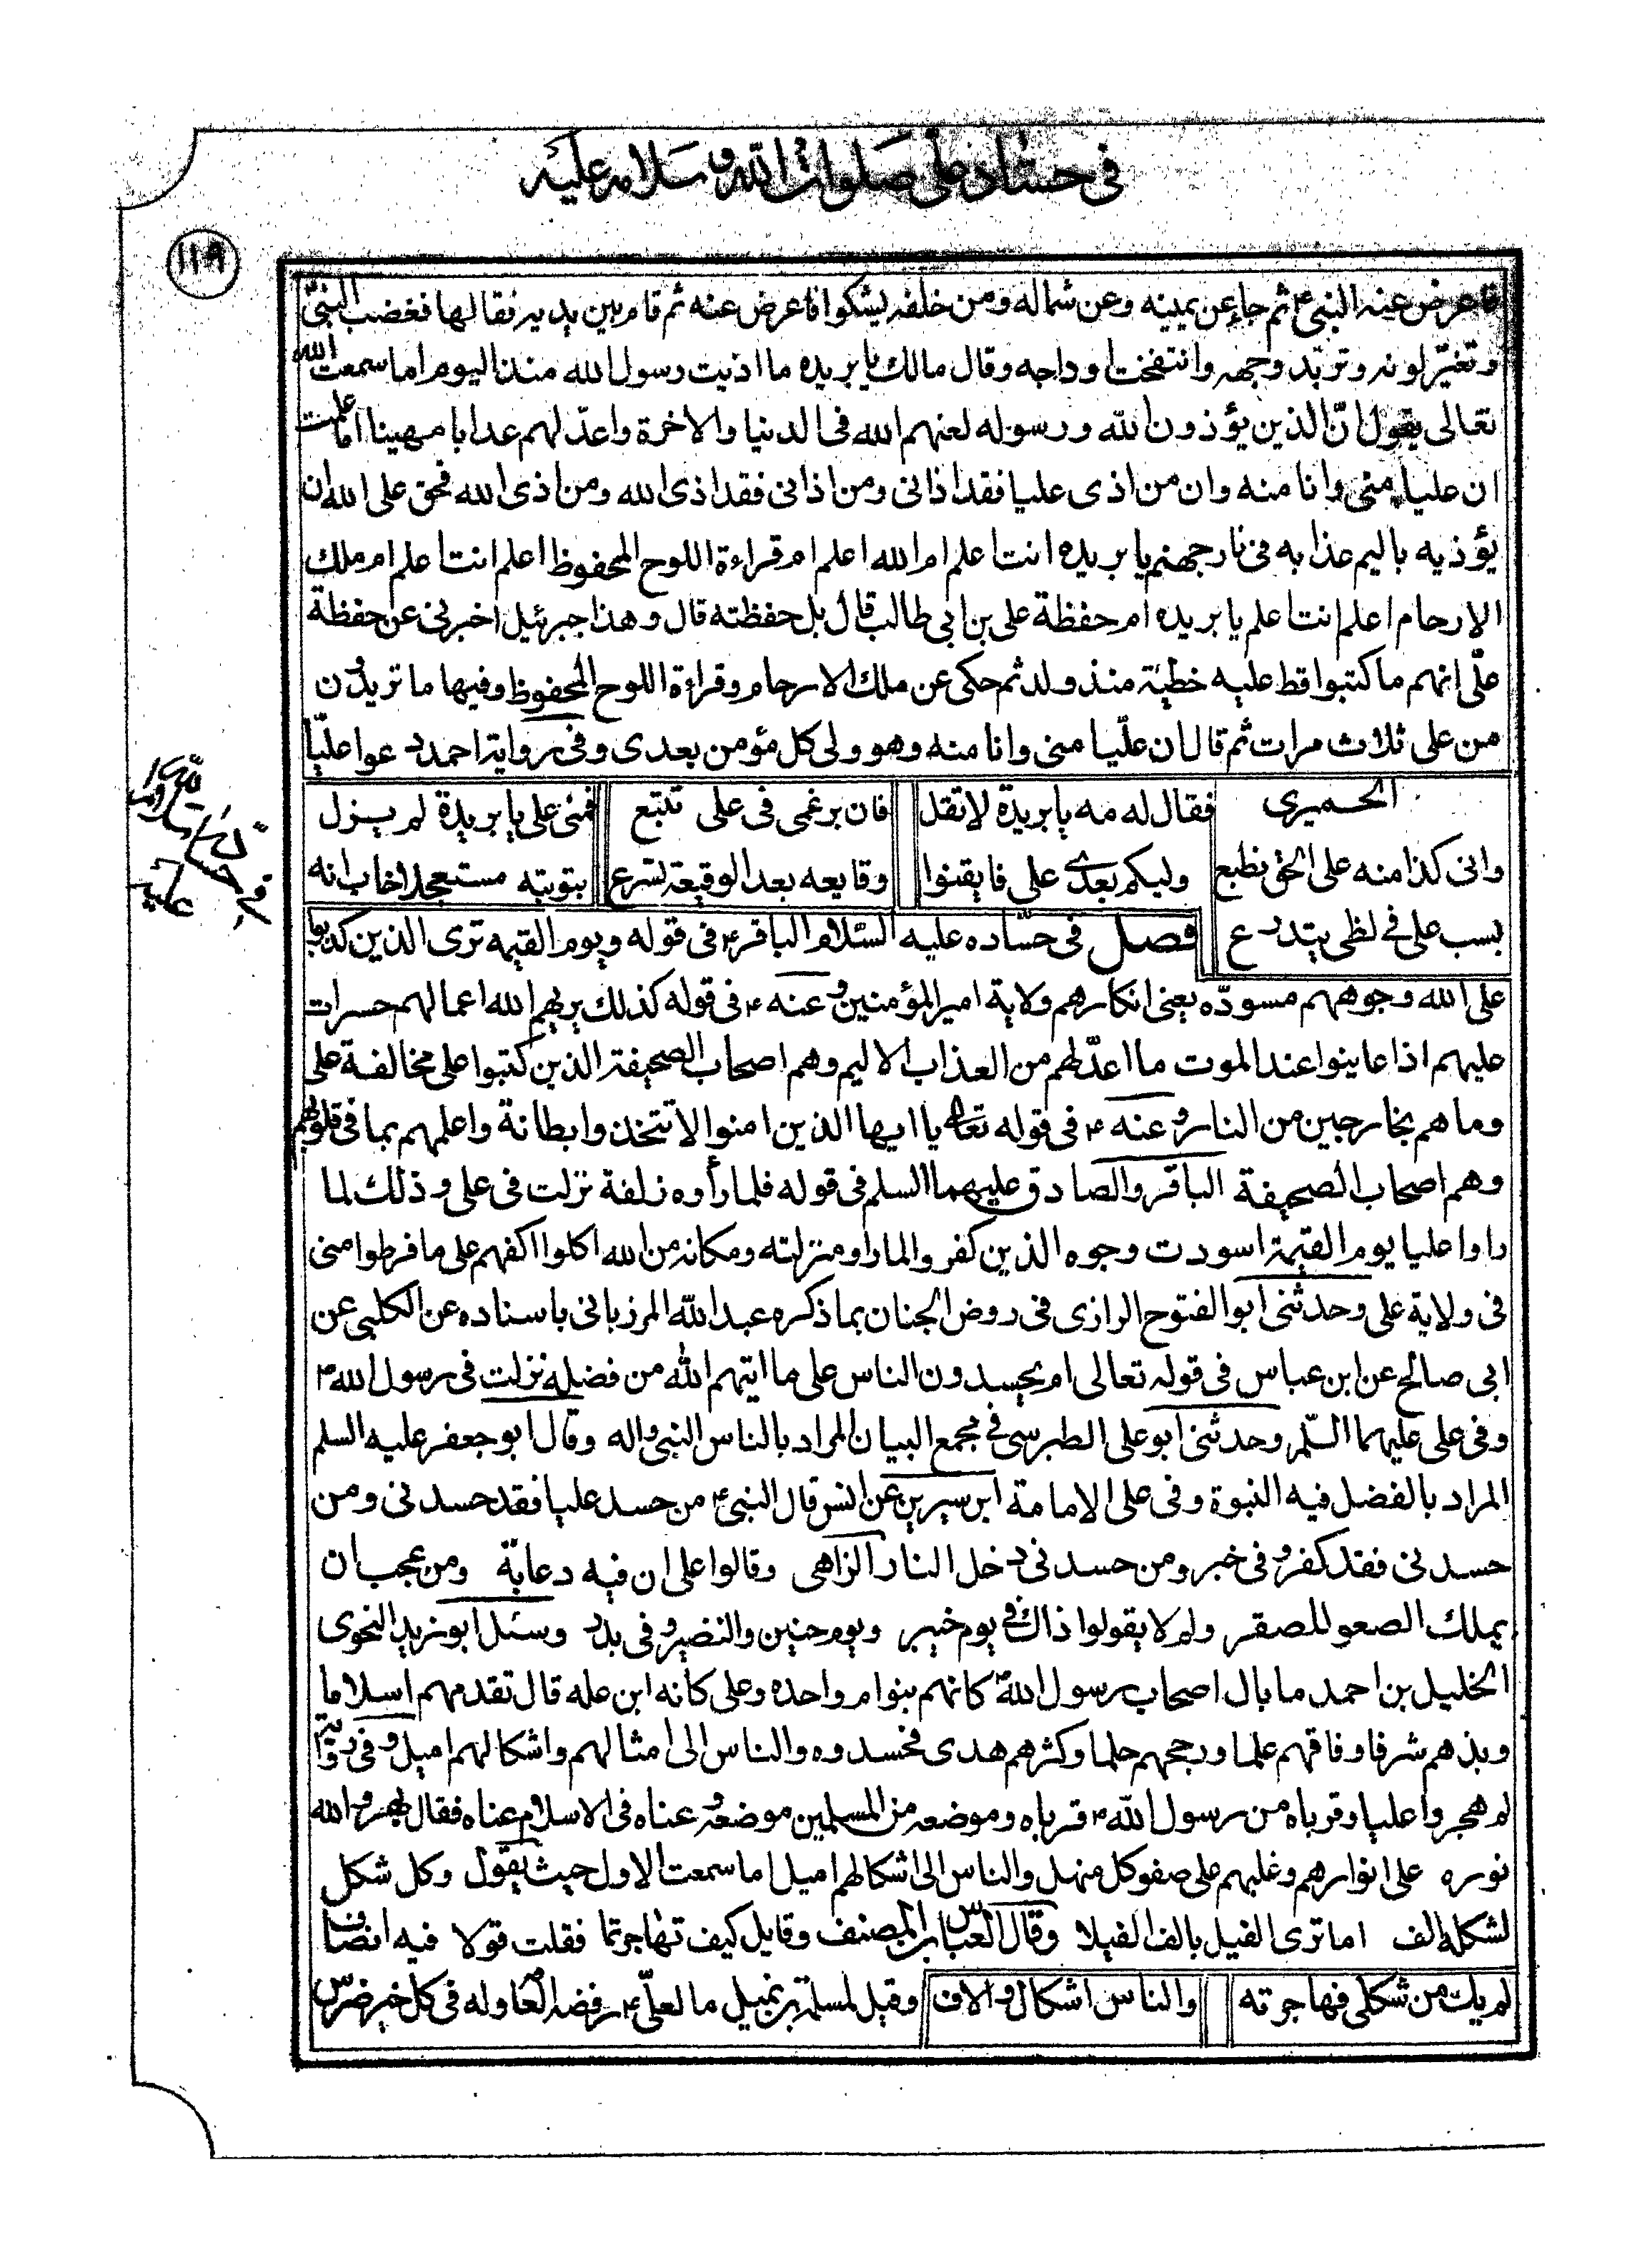 فى حساد على صلوات الله وسلامه عليه
١١٩
فاعرض عنه النبى ثم جاء عن يمينه وعن شماله ومن خلفه يشكوا فاعرض عنه ثم قام بين يديه فقالها فغضب النبىّ
وتغيّر لونه وتربّد وجهه وانتفخت اوداجه وقال مالك يا بريده ما اذيت رسول الله منذ اليوم اما سمعت الله
تعالى يقول انّ الذين يؤذون الله ورسوله لعنهم الله فى الدنيا والاخرة واعدّ لهم عذابا مهينا اما علمت
ان عليا منى وانا منه وان من اذى عليا فقد اذانى ومن اذانى فقد اذى الله ومن اذى الله فحق على الله ان
يؤذيه باليم عذابه فى نار جهنم يا بريده انت اعلم ام الله اعلم ام قراءة اللوح المحفوظ اعلم انت اعلم ام ملك
الارحام اعلم انت اعلم يا بريده ام حفظة على بن ابى طالب قال بل حفظته قال وهذا جبرئيل اخبرنى عن حفظة
علىّ انهم ما كتبوا قط عليه خطيئة منذ ولد ثم حكى عن ملك الارحام وقراءة اللوح المحفوظ وفيها ما تريدون
من على ثلاث مرات ثم قال ان عليّا منى وانا منه وهو ولى كل مؤمن بعدى وفى رواية احمد دعوا عليّا
الحميرى فقال له مه يا بريدة لا تقل فان برغمى فى على تتبع فمنى على يا بريدة لم يزل
وانى كذا منه على الحق نطبع وليكم بعدى على فايقنوا وقايعه بعد الوقيعة تسرع بتوبته مستعجلا خاب انه
بسب على فى لظى يتدرع فصل فى حسّاده عليه السّلام الباقر ع فى قوله ويوم القيمه ترى الذين كذبوا
على الله وجوههم مسودّه يعنى انكارهم ولاية امير المؤمنين وعنه ع فى قوله كذلك يريهم الله اعمالهم حسرات
عليهم اذا عاينوا عند الموت ما اعدّ لهم من العذاب الاليم وهم اصحاب الصحيفة الذين كتبوا على مخالفة على
وما هم بخارجين من النار وعنه ع فى قوله تعالى يا ايها الذين امنوا لا تتخذوا بطانة واعلمهم بما فى قلوبهم
وهم اصحاب الصحيفة الباقر والصادق عليهما السلم فى قوله فلما رأوه زلفة نزلت فى على وذلك لما
راوا عليا يوم القيمة اسودت وجوه الذين كفروا لما راو منزلته ومكانه من الله اكلوا اكفهم على ما فرطوا منى
فى ولاية على وحدثنى ابو الفتوح الرازى فى روض الجنان بما ذكره عبد الله المرزبانى باسناده عن الكلبى عن
ابى صالح عن ابن عباس فى قوله تعالى ام يحسدون الناس على ما اتيهم الله من فضله نزلت فى رسول الله
وفى على عليهما السّلم وحدثنى ابو على الطبرسى فى مجمع البيان المراد بالناس النبى واله وقال ابو جعفر عليه السلم
المراد بالفضل فيه النبوة وفى على الامامة ابن سيرين عن انس قال النبى من حسد عليا فقد حسدنى ومن
حسدنى فقد كفر وفى خبر ومن حسدنى دخل النار الزاهى وقالوا على ان فيه دعابة ومن عجب ان
يملك الصعو للصقر ولم لا يقولوا ذاك فى يوم خيبر ويوم حنين والنضير وفى بدر وسئل ابو زيد النحوى
الخليل بن احمد ما بال اصحاب رسول الله كانهم بنوا ام واحده وعلى كانه ابن عله قال تقدمهم اسلاما
وبذهم شرفا وفاقهم علما ورجحهم حلما وكثرهم هدى فحسدوه والناس الى امثالهم واشكالهم اميل وفى رواية
لم هجروا عليا وقرباه من رسول الله قرباه وموضعه من المسلمين موضعه وعناه فى الاسلام عناه فقال بهر والله
نوره على انوارهم وغلبهم على صفو كل منهل والناس الى اشكالهم اميل اما سمعت الاول حيث يقول وكل شكل
لشكله الف اما ترى الفيل يالف الفيلا وقال العباس بن المصنف وقايل كيف تهاجرتما فقلت قولا فيه انصاف
لم يك من شكلى فهاجرته والناس اشكال والاف وقيل لمسلمة بن نميل ما لعلىّ ع رفضه العامه وله فى كل خير ضرس
فى حساد على صلوات الله وسلامه عليه